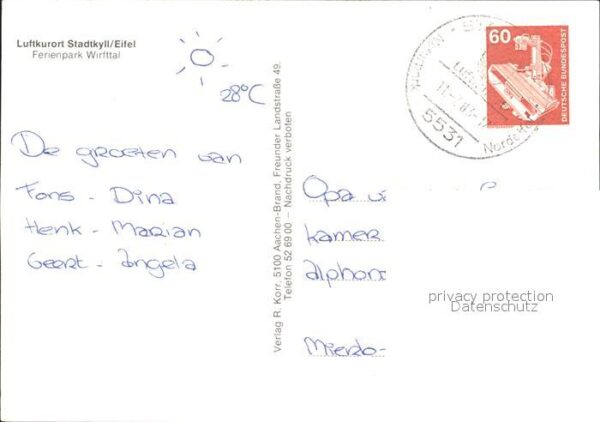 Luftkurort Stadtkyll/Eifel
Ferienpark Wirfttal
28°C
De groeten van
Fons - Dina
Henk - Marian
Geert - Angela
Verlag R. Korr, 5100 Aachen-Brand, Freunder Landstraße 49,
Telefon 52 69 00 – Nachdruck verboten
60
DEUTSCHE BUNDESPOST
5531
Opa
kamer
alphon
Mierlo-
privacy protection
Datenschutz